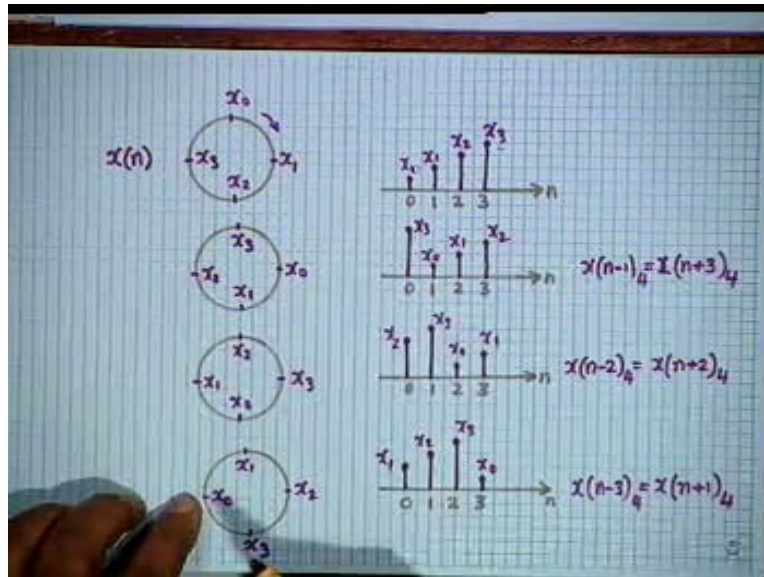 x₀
x(n) x₃ x₁
x₂
x₀ x₁ x₂ x₃
0 1 2 3 n
x₃
x₂ x₀
x₁
x₃ x₀ x₁ x₂
0 1 2 3 n
x(n-1)₄ = x(n+3)₄
x₂
x₁ x₃
x₀
x₂ x₃ x₀ x₁
0 1 2 3 n
x(n-2)₄ = x(n+2)₄
x₁
x₀ x₂
x₃
x₁ x₂ x₃ x₀
0 1 2 3 n
x(n-3)₄ = x(n+1)₄